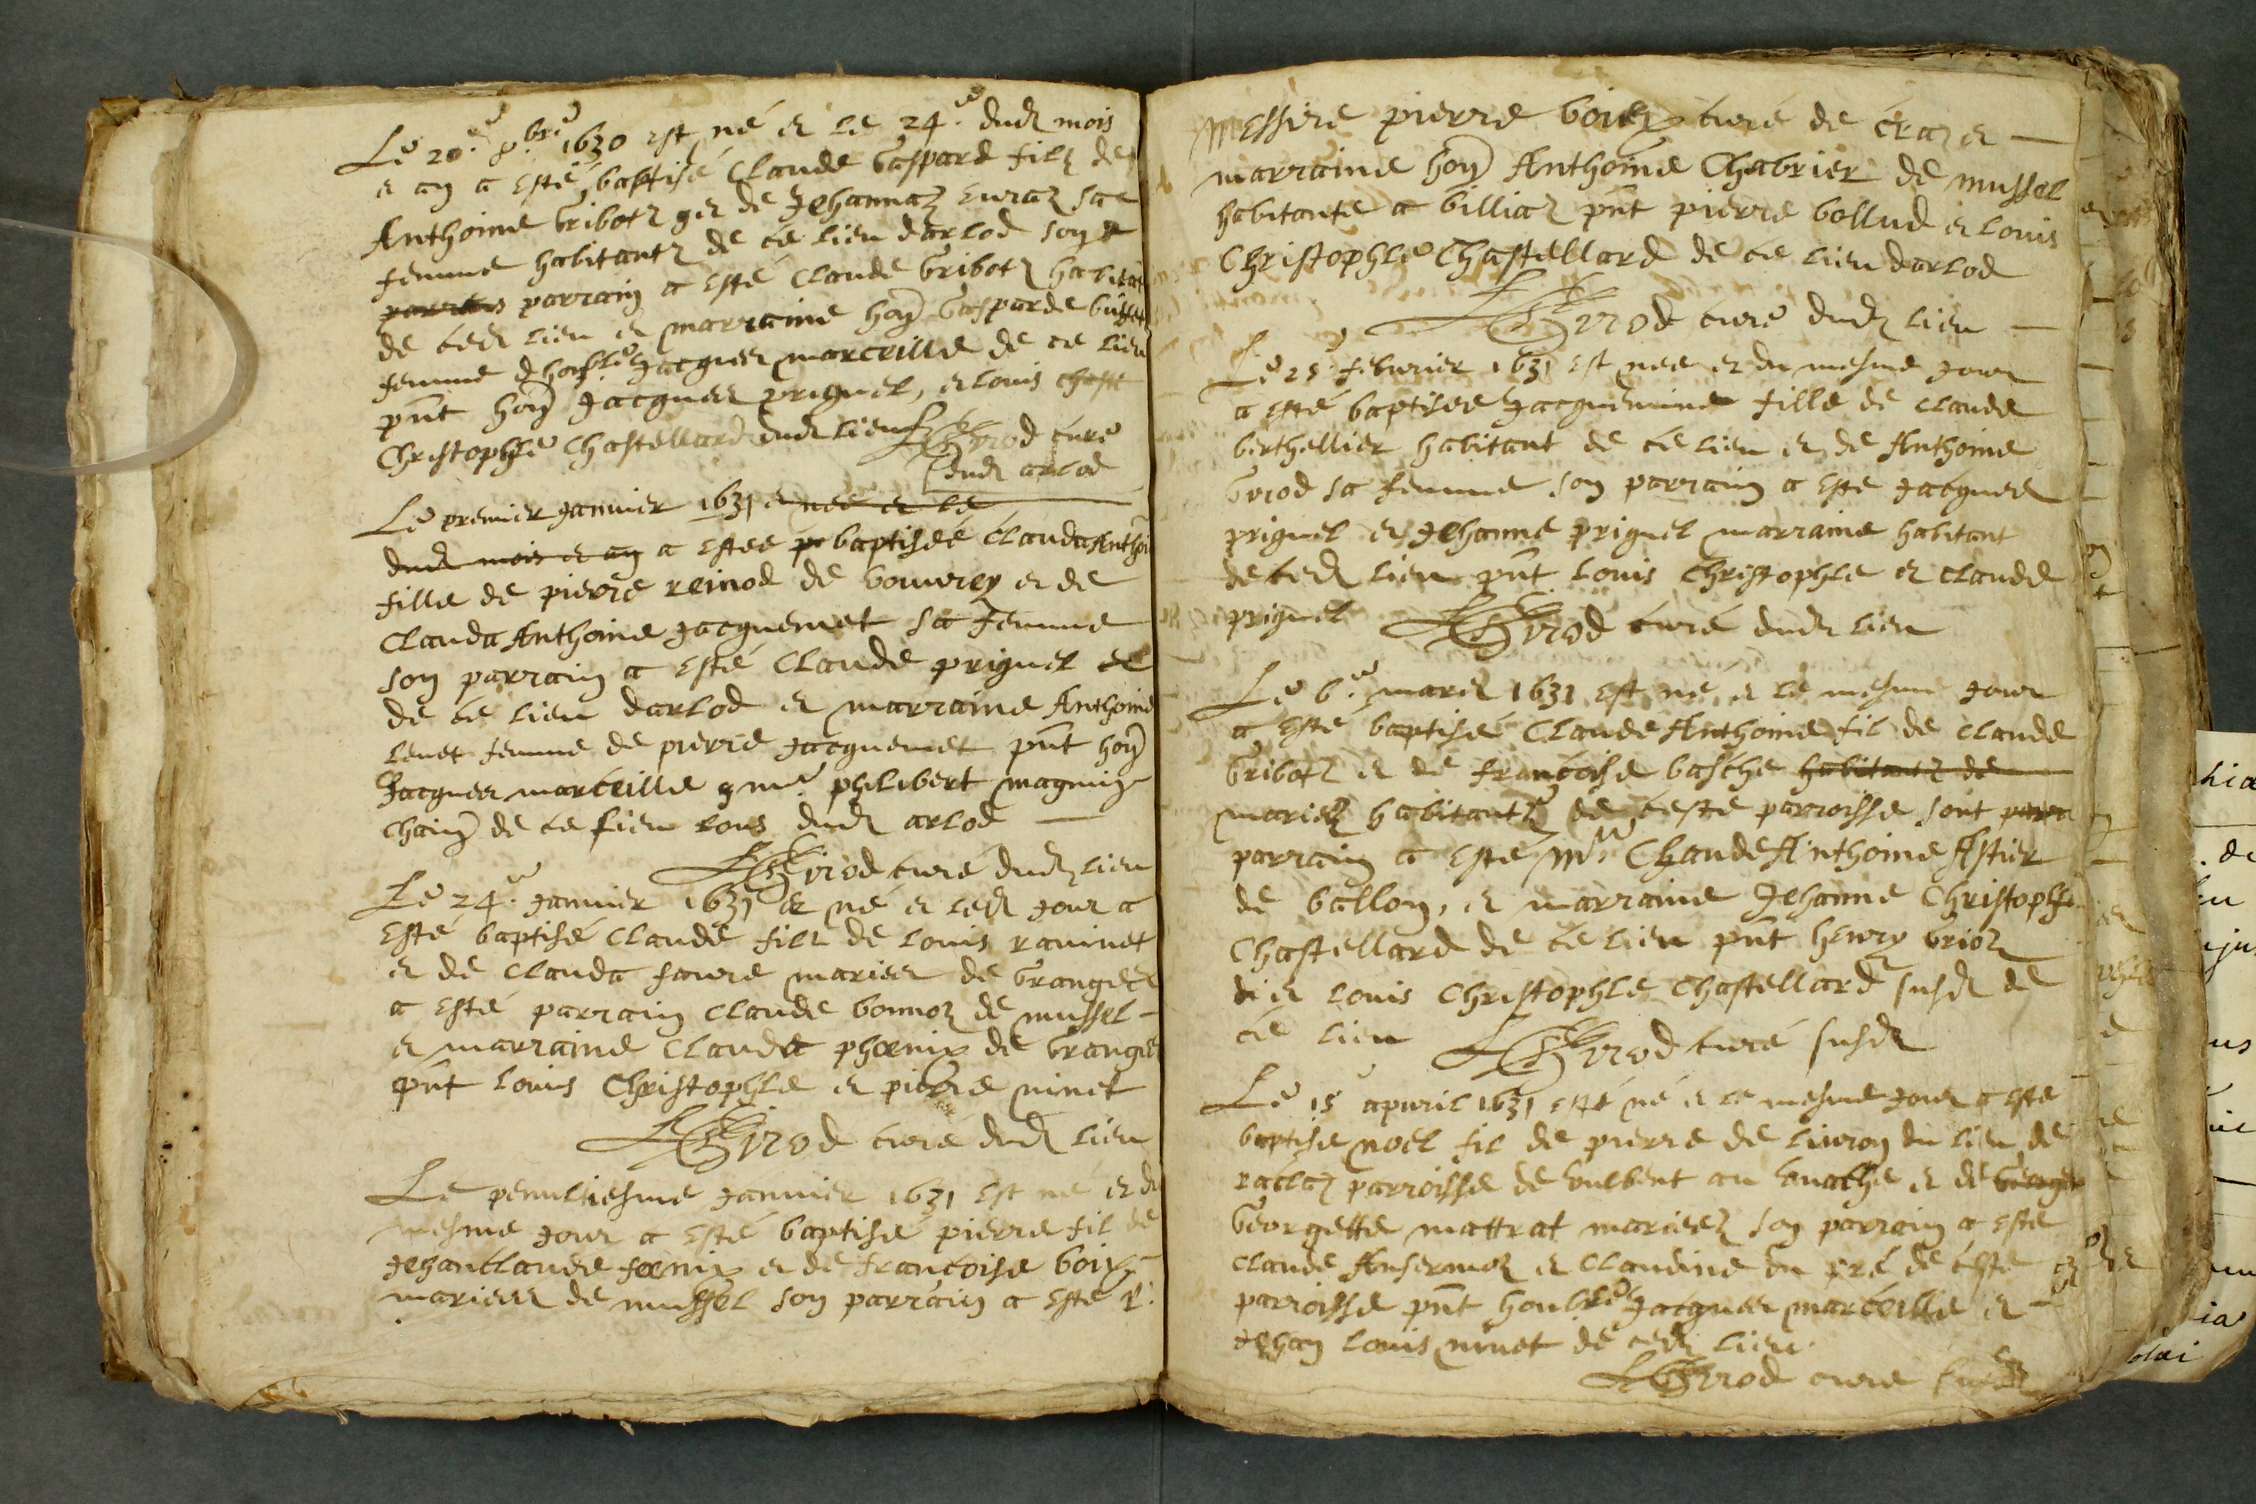 Le 20.e 8.bre 1630 est né et le 24.e dud mois
et an a esté baptisé Claude Gaspard filz de
Anthoine Gribotz et de Jehannaz Curaz sa
femme habitantz de ce lieu darlod son
parrain parrain a esté Claude Gribotz habitant
de ced lieu et marraine hon Gasparde
femme d honble Jacques marceille de ce lieu
pnt hon Jacques prignel, et louis chast
Christophle Chastellard dud lieu Girod curé
dud arlod
Le premier Janvier 1631 et nee et le
dud mois et an a estee baptisée Claudaanthoi
fille de pierre reinod de vouvrey et de
Clauda Anthoine Jacquemet sa femme
son parrain a esté Claude prignel
de ce lieu darlod et marraine Anthoine
levet femme de pierre Jacquemet pnt hon
Jacques marceille me philibert magnin
chain de ce lieu tous dud arlod
Girod curé dud lieu
Le 24.e Janvier 1631 est né et led Jour a
esté baptisé Claude filz de louis ravinet
et de clauda favre mariez de Granges
a esté parrain Claude bonnoz de mussel
et marraine Clauda phœnix de Granges
pnt louis Christophle et pierre ninet
Girod curé dud lieu
Le penultiesme Janvier 1631 est né et du
mesme Jour a esté baptisé pierre fil de
Jehanclaude fœnix et de francoise boix
mariez de mussel son parrain a esté
Messire pierre boix curé de craz et
marraine hon Anthoine Chabrier de mussel
habitante a billiaz pnt pierre bollud et louis
Christophle Chastellard de ce lieu darlod
Girod curé dud lieu
Le 25 febvrier 1631 est nee et du mesme Jour
a esté baptisee Jacquemine fille de claude
berthellier habitant de ce lieu et de Anthoine
Girod sa femme son parrain a esté Jacques
prignel et Jehanne prignel marraine habitant
de ced lieu pnt louis Christophle et claude
prignel Girod curé dud lieu
Le 6.e mars 1631 est né et le mesme Jour
a esté baptisé Claude Anthoine fil de claude
Gribotz et de francoise basche habitantz de
mariez habitantz de ceste parroisse sont
parrain a esté Mre Claude Anthoine Astier
de ballon, et marraine Jehanne Christophle
Chastellard de ce lieu pnt henry brioz
et louis Christophle Chastellard susd de
ce lieu Girod curé susd
Le 15 apvril 1631 esté né et le mesme Jour a esté
baptisé noel fil de pierre de livron du lieu de
raclaz parroisse de vulbent au vuache et de
Georgette mattrat mariez son parrain a esté
claude Ansermoz et Claudine du pré de ceste
parroisse pnt honble Jacques marceille et
Jehan louis ninet de ced lieu
Girod curé susd